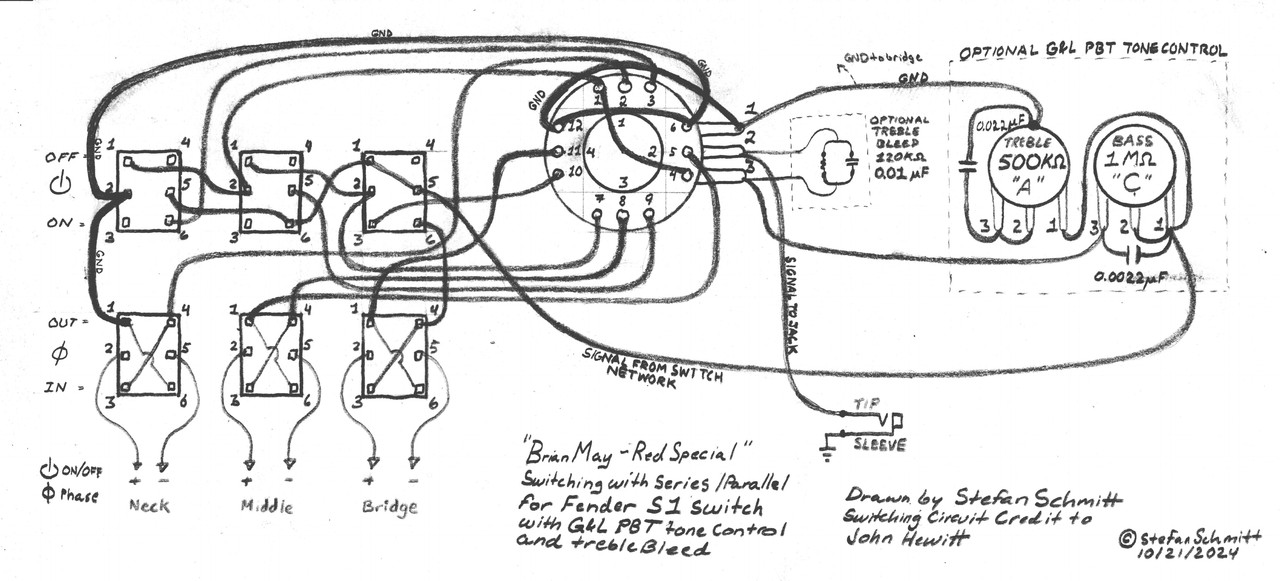 GND
OPTIONAL G&L PBT TONE CONTROL
GND to bridge
GND
GND
GND
1 2 3
12 6
11 5
10 4
7 8 9
1
4 2
3
1
2
3
OPTIONAL
TREBLE
BLEED
120KΩ
0.01 µF
0.022µF
TREBLE
500KΩ
"A"
BASS
1 MΩ
"C"
3 2 1
3 2 1
0.0022µF
GND
OFF=
ON=
1 4
2 5
3 6
1 4
2 5
3 6
1 4
2 5
3 6
GND
OUT=
Φ
IN=
1 4
2 5
3 6
1 4
2 5
3 6
1 4
2 5
3 6
SIGNAL TO JACK
SIGNAL FROM SWITCH
NETWORK
TIP
SLEEVE
ON/OFF
Φ Phase
+ -
Neck
+ -
Middle
+ -
Bridge
"Brian May - Red Special"
Switching with Series / Parallel
for Fender S1 switch
with G&L PBT tone control
and treble Bleed
Drawn by Stefan Schmitt
Switching Circuit Credit to
John Hewitt
© Stefan Schmitt
10/21/2024